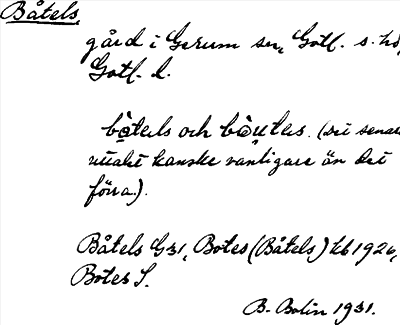 Båtels,
gård i Gerum sn, Gotl. s. hd,
Gotl. l.
bå̀tels och bå̀u̯tes. (det senare
uttalet kanske vanligare än det
förra).
Båtels G31, Botes (Båtels) kb 1926,
Botes S.
B. Bolin 1931.